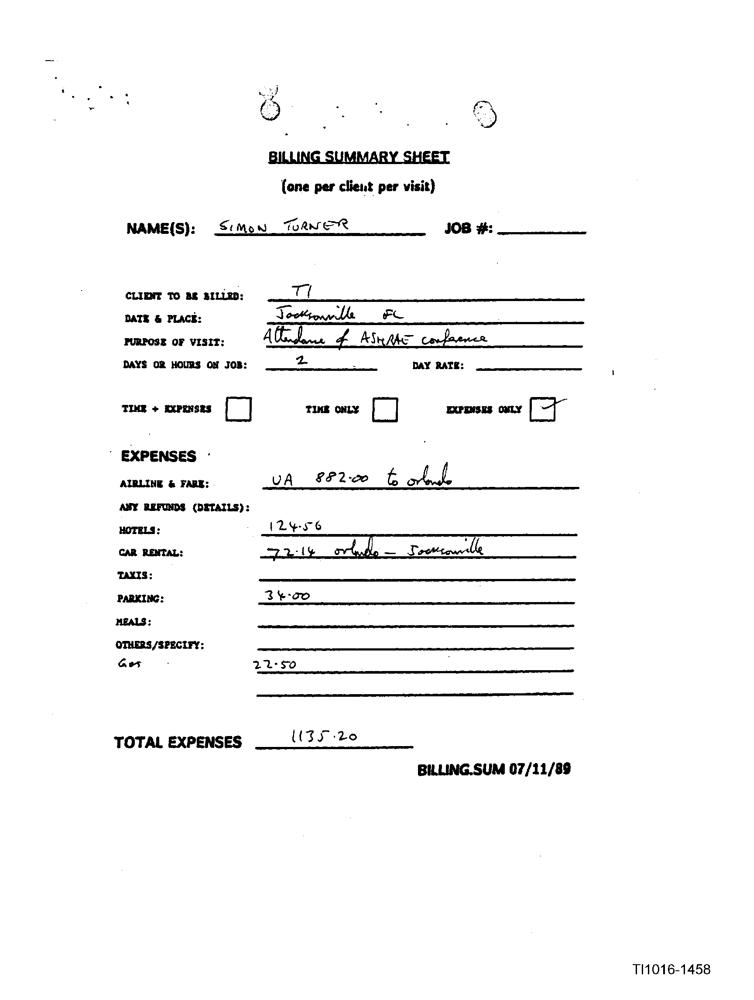 BILLING SUMMARY SHEET
(one per client per visit)
NAME(S): SIMON TURNER JOB #:
CLIENT TO BE BILLED: TI
DATE & PLACE: Jacksonville FL
PURPOSE OF VISIT: Attendance of ASHRAE conference
DAYS OR HOURS ON JOB: 2 DAY RATE:
TIME + EXPENSES TIME ONLY EXPENSES ONLY ✓
EXPENSES
AIRLINE & FARE: UA 882.00 to orlando
ANY REFUNDS (DETAILS):
HOTELS: 124.56
CAR RENTAL: 72.14 orlando - Jacksonville
TAXIS:
PARKING: 34.00
MEALS:
OTHERS/SPECIFY:
Gas 22.50
TOTAL EXPENSES 1135.20
BILLING.SUM 07/11/89
TI1016-1458